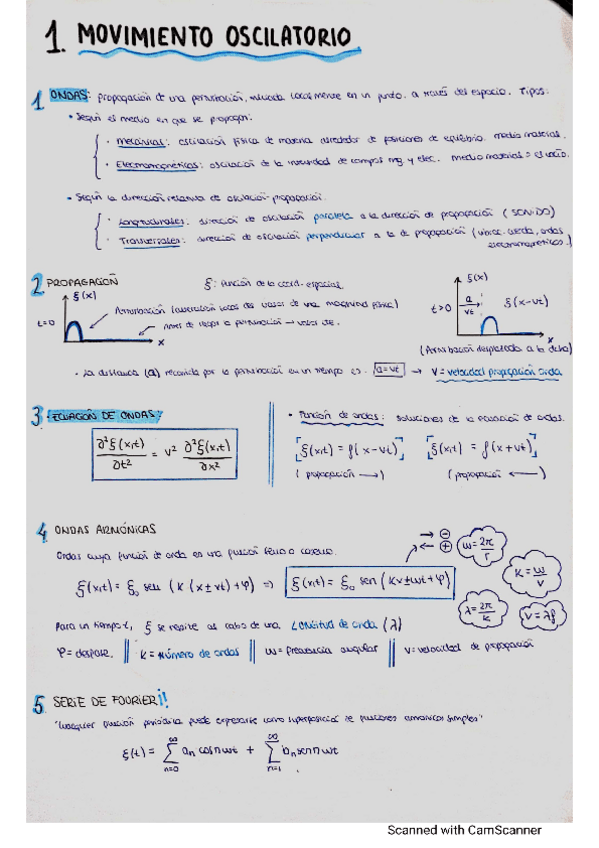 1. MOVIMIENTO OSCILATORIO
1 ONDAS: propagación de una perturbación, situada localmente en un punto, a través del espacio. Tipos:
• Según el medio en que se propagan:
· Mecánicas: oscilación física de materia alrededor de posiciones de equilibrio. medio material.
· Electromagnéticas: oscilación de la intensidad de campos mag y elec. medio material o el vacío.
• Según la dirección relativa de oscilación-propagación.
· Longitudinales: dirección de oscilación paralela a la dirección de propagación (SONIDO)
· Transversales: dirección de oscilación perpendicular a la de propagación (vibrac. cuerda, ondas
electromagnéticas.)
2 PROPAGACIÓN ξ: función de la coord. espacial.
ξ(x) ξ(x)
Perturbación (alteración local del valor de una magnitud física)
t=0 t>0 a vt ξ(x-vt)
x x
(Perturbación desplazada a la dcha)
• La distancia (a) recorrida por la perturbación en un tiempo es: a=vt → v = velocidad propagación onda
3 ECUACIÓN DE ONDAS:
∂²ξ(x,t)/∂t² = v² ∂²ξ(x,t)/∂x²
• Función de ondas: soluciones de la ecuación de ondas.
ξ(x,t) = f(x-vt) ξ(x,t) = f(x+vt)
(propagación →) (propagación ←)
4 ONDAS ARMÓNICAS
Ondas cuya función de onda es una función seno o coseno.
→ ⊖
← ⊕
ω = 2π/T
k = ω/v
ξ(x,t) = ξ₀ sen (k(x±vt)+φ) ⇒ ξ(x,t) = ξ₀ sen (kx±ωt+φ)
λ = 2π/k
v = λf
Para un tiempo t, ξ se repite al cabo de una Longitud de onda (λ)
φ = desfase. k = número de ondas ω = frecuencia angular v = velocidad de propagación
5 SERIE DE FOURIER¡!
"Cualquier función periódica puede expresarse como superposición de funciones armónicas simples"
ξ(t) = ∞ Σ n=0 aₙ cos nωt + ∞ Σ n=1 bₙ sen nωt
Scanned with CamScanner